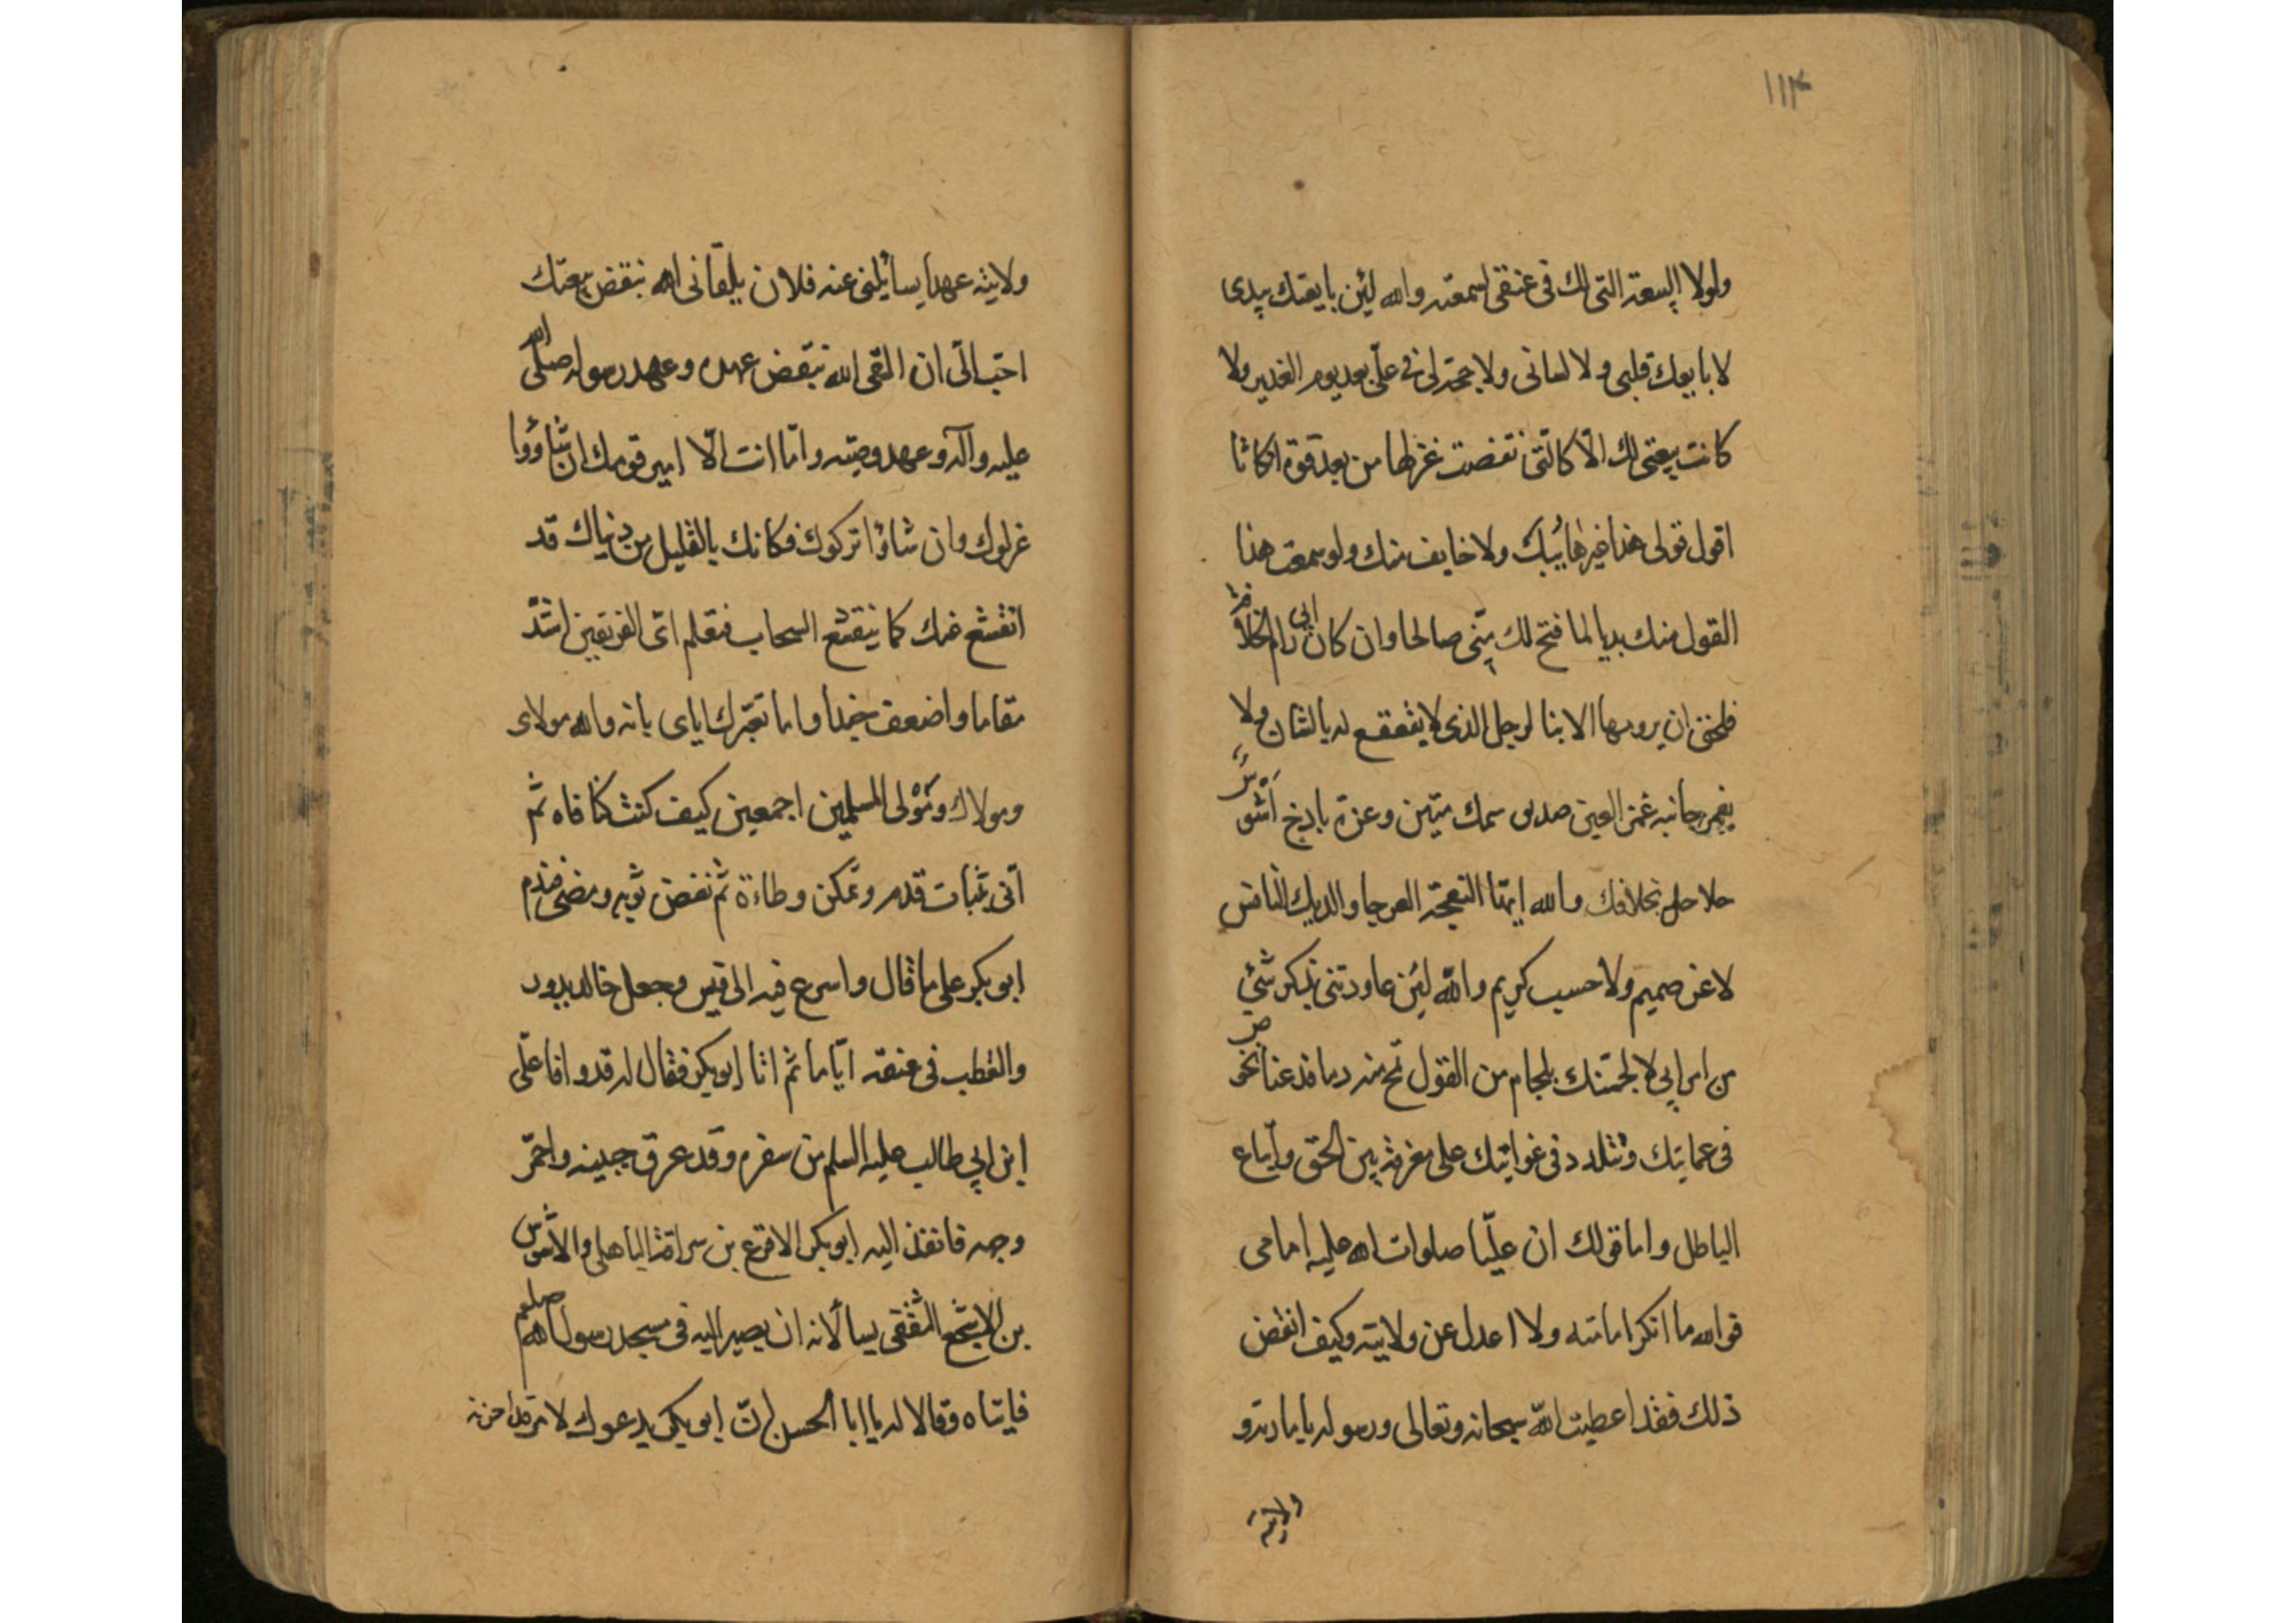 ١١٤
ولولا البيعة التى لك فى عنقى لسمعته والله لئن بايعتك بيدى
لا بايعك قلبى ولا لسانى ولا حجة لى فى علىّ بعد يوم الغدير ولا
كانت بيعتى لك الّا كالّتى نقضت غزلها من بعد قوة انكاثا
اقول قولى هذا غير هائبك ولا خايف منك ولو سمعت هذا
القول منك بديا لما فتح لك منّى صالحا وان كان ابى رام الخلافة
ان يرومها الابنا لرجل الذى لا يقعقع له بالشنان ولا
يغمز جانبه غمز العين صديق سمك متين وعزة باذخ اشوس
حلاحل بخلافك والله ايتها النعجة العرجا والديك النافس
لا عن صميم ولا حسب كريم والله لئن عاودتنى تذكر شئ
من امر ابى لالجمنّك بلجام من القول تمج منه دما فدعنا نخوض
فى عمايتك وتتلدد فى غوائيك على معرفة بين الحق واتباع
الباطل واما قولك ان عليّا صلوات الله عليه امامى
فوالله ما انكر امامته ولا اعدل عن ولايته وكيف انقض
ذلك فقد اعطيت اللّه سبحانه وتعالى ورسوله بامارته و
ولايته
ولايته عهدا يسائلنى عنه فلان يلقانى الله بنقض بيعتك
احبّ الىّ ان القى الله بنقض عهده وعهد رسوله صلّى الله
عليه وآله وعهد وصيّه وامّا انت الّا امير قومك ان شاؤوا
عزلوك وان شاؤا تركوك فكانك بالقليل من دنياك قد
انقشع عنك كما ينقشع السحاب فتعلم اىّ الفريقين اشدّ
مقاما واضعف جندا واما تعيّرك اياى بانه والله مولاى
ومولاك ومولى المسلمين اجمعين كيف كنت كنا فاه ثم
انّى بثبات قدم وتمكن وطاءة ثم نفض ثوبه ومضى فندم
ابو بكر على ما قال واسرع فيه الى قيس وجعل خالد يدور
والقطب فى عنقه ايّاما ثم اتا ابو بكر فقال له قد وافا علّى
ابن ابي طالب عليه السلم من سفره وقد عرق جبينه واحمّر
وجهه فانفذ اليه ابو بكر الاقرع بن سراقة الباهلى والاشوس
بن الاشجع الثقفى يسألانه ان يصير اليه فى مسجد رسول الله صلعم
فاتياه وقالا له يا ابا الحسن انّ ابو بكر يدعوك لامر قد احزنه